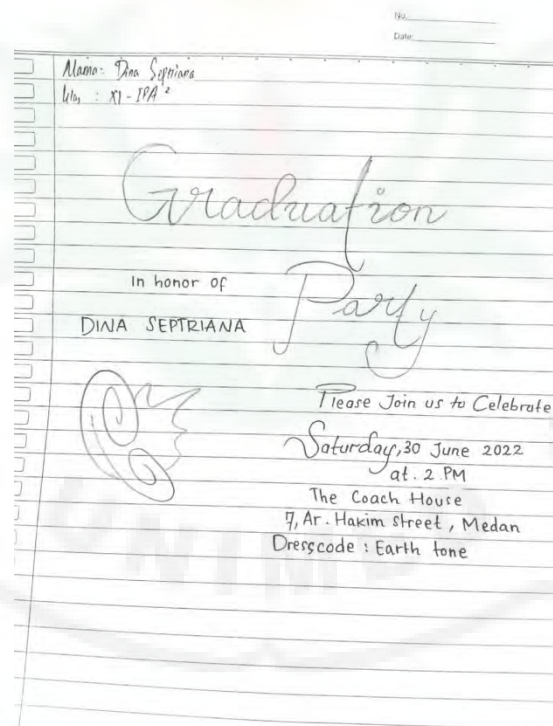 No.
Date:
Nama: Dina Septriana
Kelas : XI - IPA 2
Graduation
In honor of
Party
DINA SEPTRIANA
Please Join us to Celebrate
Saturday, 30 June 2022
at. 2 PM
The Coach House
7, Ar. Hakim street, Medan
Dresscode : Earth tone
UNIMED